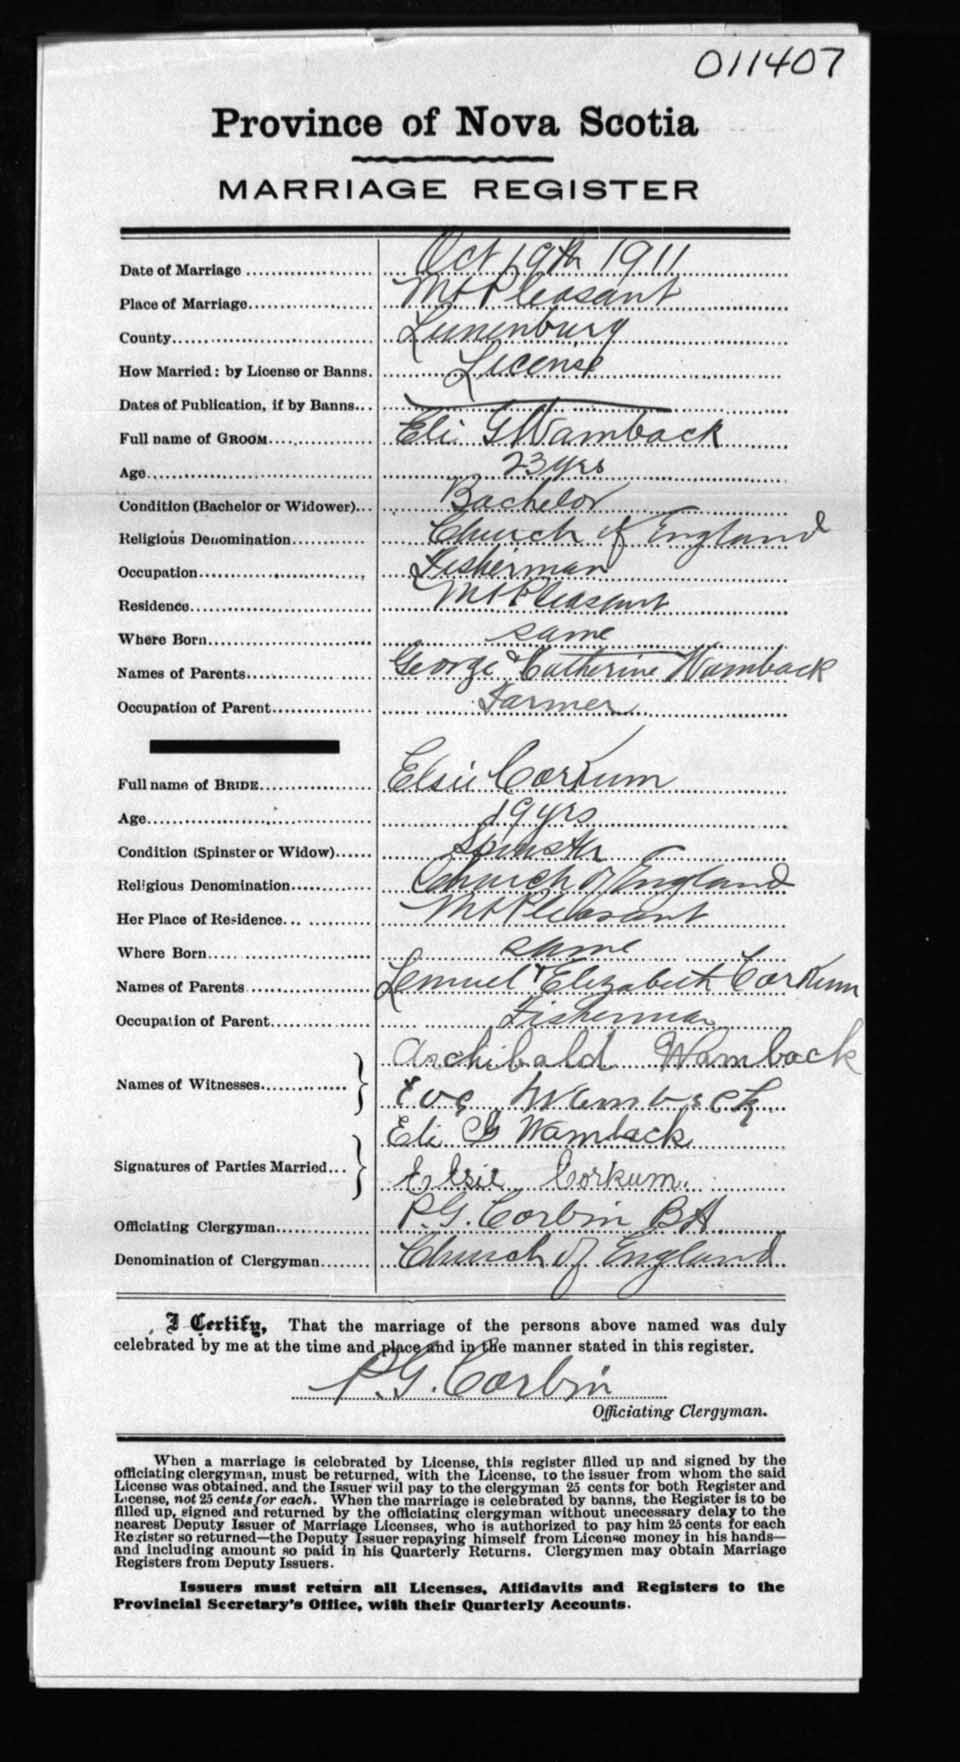 011407
Province of Nova Scotia
MARRIAGE REGISTER
Date of Marriage Oct 19th 1911
Place of Marriage Mt Pleasant
County Lunenburg
How Married: by License or Banns. License
Dates of Publication, if by Banns
Full name of GROOM Eli G Wamback
Age 23 yrs
Condition (Bachelor or Widower) Bachelor
Religious Denomination Church of England
Occupation Fisherman
Residence Mt Pleasant
Where Born same
Names of Parents George & Catherine Wamback
Occupation of Parent Farmer
Full name of BRIDE Elsie Corkum
Age 19 yrs
Condition (Spinster or Widow) Spinster
Religious Denomination Church of England
Her Place of Residence Mt Pleasant
Where Born same
Names of Parents Lemuel & Elizabeth Corkum
Occupation of Parent Fisherman
Names of Witnesses } Archibald Wamback
Wamback
Signatures of Parties Married } Eli G Wamback
Elsie Corkum.
Officiating Clergyman P.G. Corbin BA
Denomination of Clergyman Church of England
I Certify, That the marriage of the persons above named was duly
celebrated by me at the time and place and in the manner stated in this register.
P.G. Corbin
Officiating Clergyman.
When a marriage is celebrated by License, this register filled up and signed by the
officiating clergyman, must be returned, with the License, to the issuer from whom the said
License was obtained, and the Issuer will pay to the clergyman 25 cents for both Register and
License, not 25 cents for each. When the marriage is celebrated by banns, the Register is to be
filled up, signed and returned by the officiating clergyman without unnecessary delay to the
nearest Deputy Issuer of Marriage Licenses, who is authorized to pay him 25 cents for each
Register so returned—the Deputy Issuer repaying himself from License money in his hands—
and including amount so paid in his Quarterly Returns. Clergymen may obtain Marriage
Registers from Deputy Issuers.
Issuers must return all Licenses, Affidavits and Registers to the
Provincial Secretary's Office, with their Quarterly Accounts.